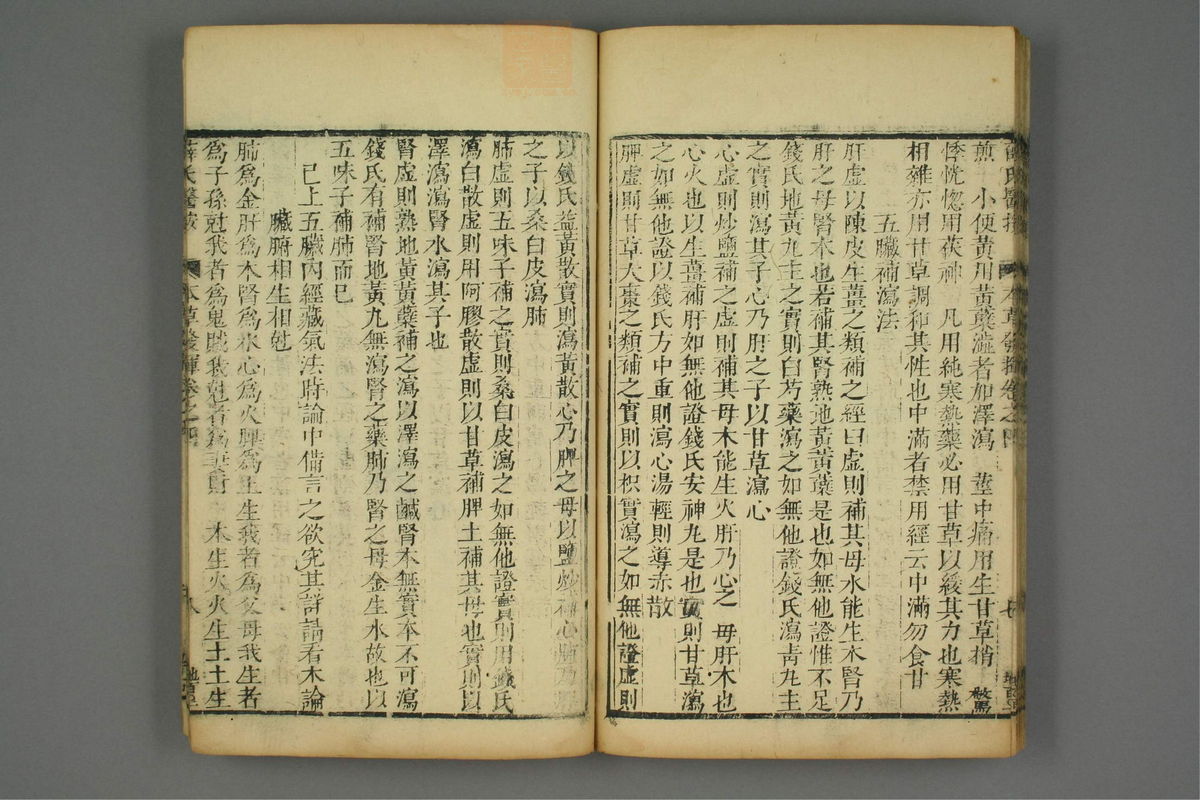 薛氏醫按 本草發揮卷之四 七
煎 小便黃用黃蘗澁者加澤瀉 莖中痛用生甘草梢 驚
悸恍惚用茯神 凡用純寒熱藥必用甘草以緩其力也寒熱
相雜亦用甘草調和其性也中滿者禁用經云中滿勿食甘
五臟補瀉法
肝虛以陳皮生薑之類補之經曰虛則補其母水能生木腎乃
肝之母腎水也若補其腎熟地黃黃蘗是也如無他證惟不足
錢氏地黃丸主之實則白芍藥瀉之如無他證錢氏瀉青丸主
之實則瀉其子心乃肝之子以甘草瀉心
心虛則炒鹽補之虛則補其母木能生火肝乃心之母肝木也
心火也以生薑補肝如無他證錢氏安神丸是也實則甘草瀉
之如無他證以錢氏方中重則瀉心湯輕則導赤散
脾虛則甘草大棗之類補之實則以枳實瀉之如無他證虛則
以錢氏益黃散實則瀉黃散心乃脾之母以鹽炒補心肺乃脾
之子以桑白皮瀉肺
肺虛則五味子補之實則桑白皮瀉之如無他證實則用錢氏
瀉白散虛則用阿膠散虛則以甘草補脾土補其母也實則以
澤瀉瀉腎水瀉其子也
腎虛則熟地黃黃蘗補之瀉以澤瀉之鹹腎本無實本不可瀉
錢氏有補腎地黃丸無瀉腎之藥肺乃腎之母金生水故也以
五味子補肺而已
已上五臟內經藏氣法時論中備言之欲究其詳請看本論
臟腑相生相尅
肺為金肝為木腎為水心為火脾為土生我者為父母我生者
為子孫尅我者為鬼賊我尅者為妻財 木生火火生土土生
薛氏醫按 本草發揮卷之四 八